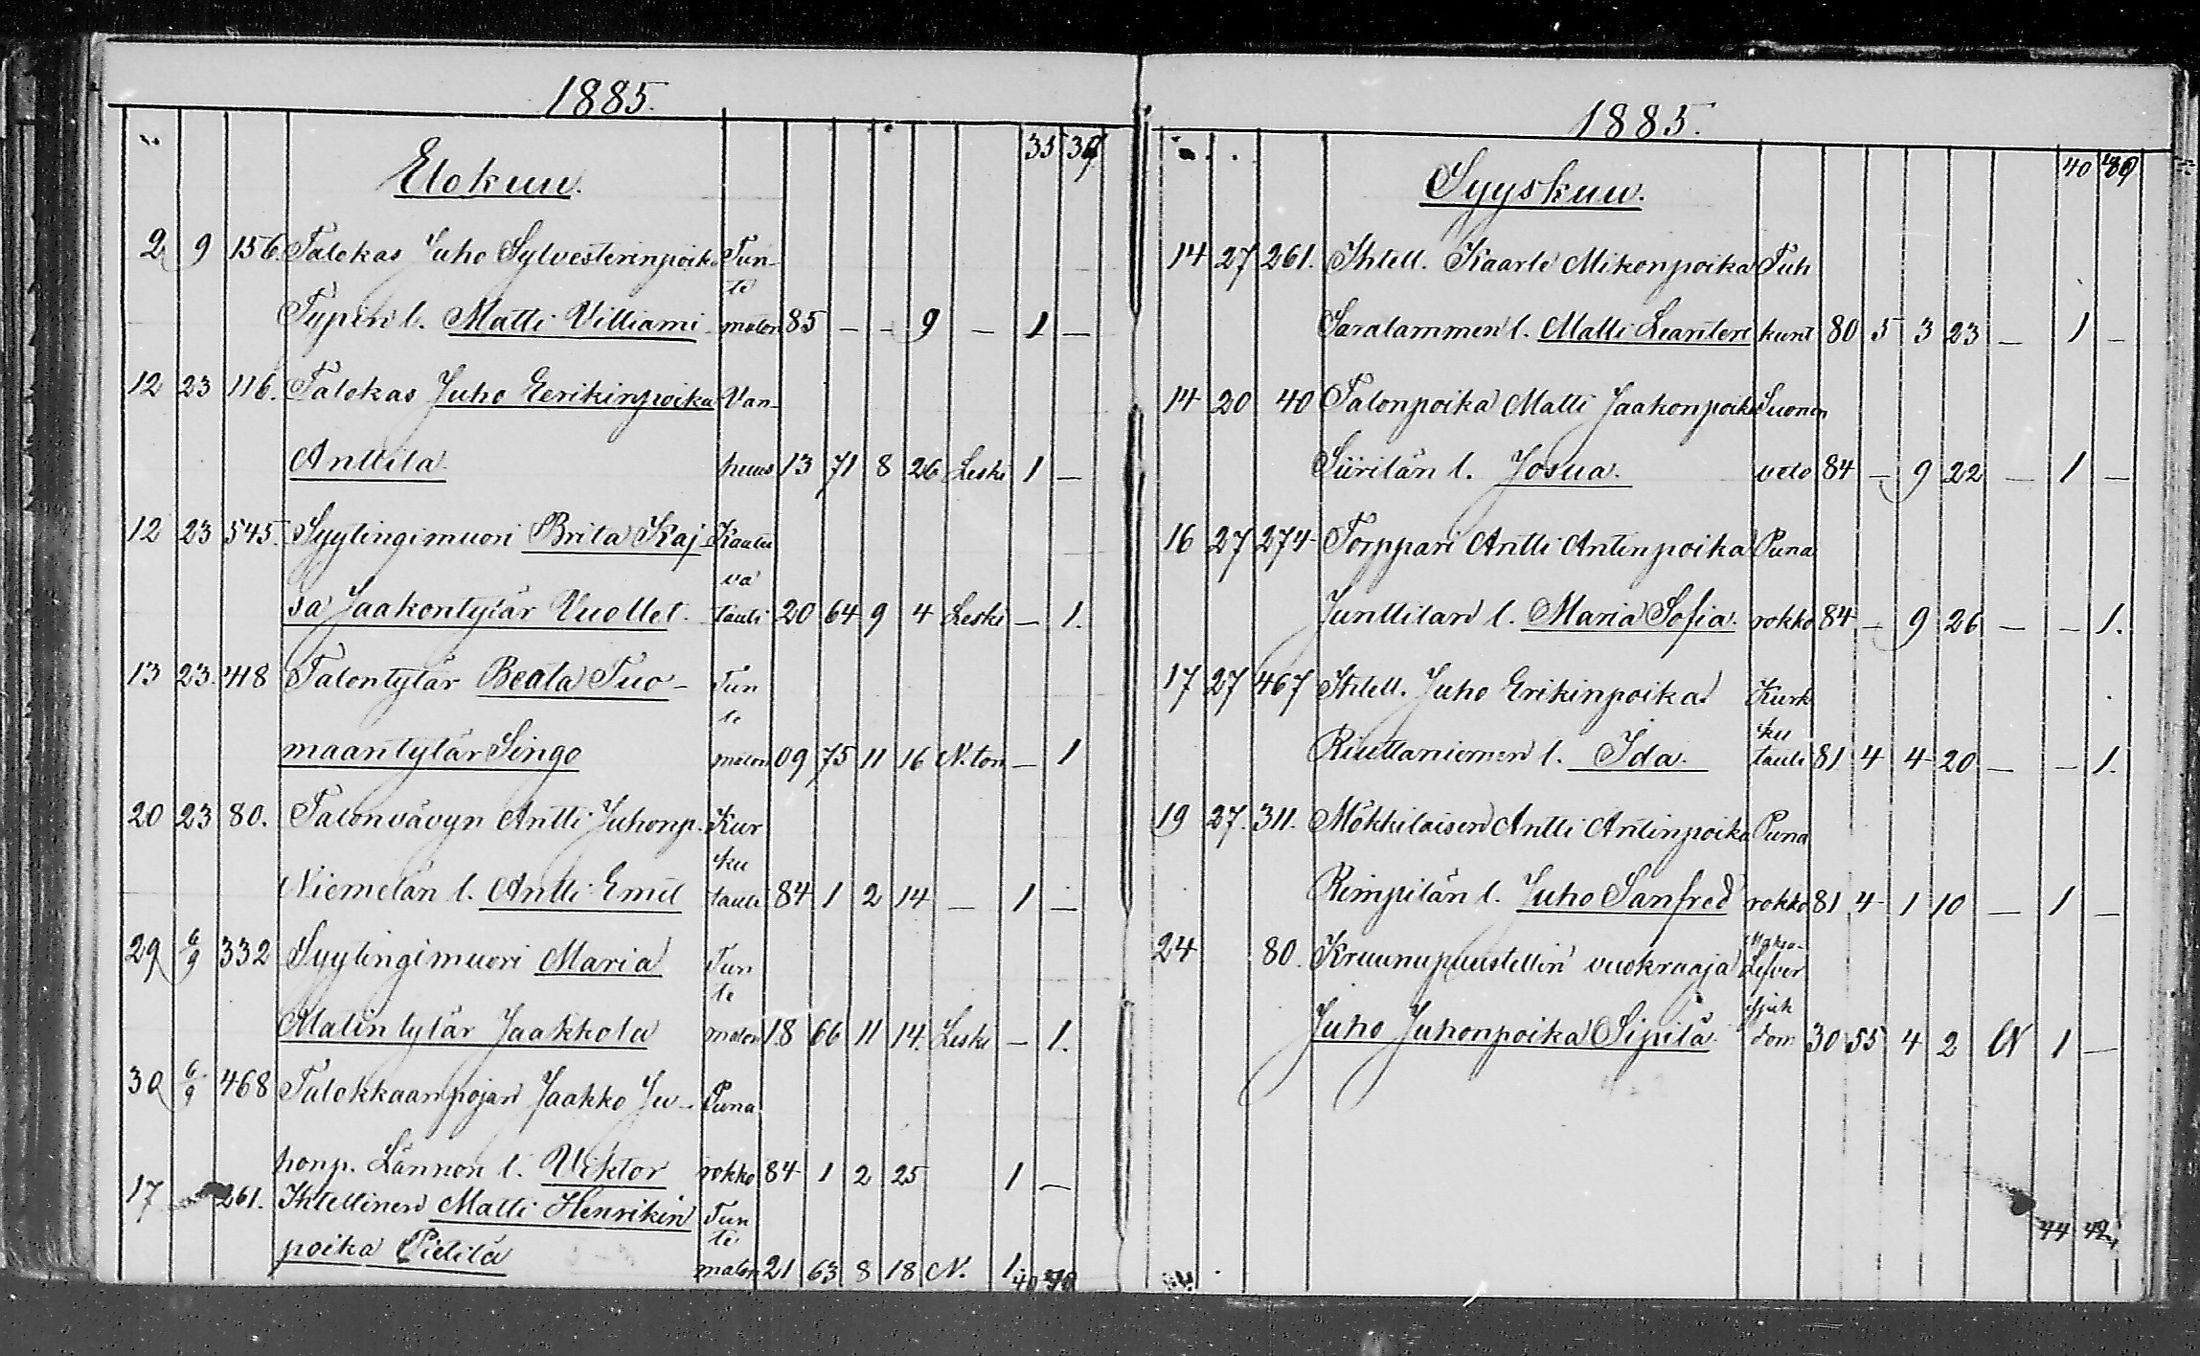 1885.
35 39
Elokuu.
2 9 156. Talokas Juho Sylvesterinpoika Tun-
te
Typin l. Matti Villiami maton 85 — — 9 — 1 —
12 23 116. Talokas Juho Eerikinpoika Van-
Anttila. huus 13 71 8 26 Leski 1 —
12 23 545. Syytingimuori Brita Kaj- Kaatu
va
sa Jaakontytär Vuollet. tauti 20 64 9 4 Leski — 1.
13 23. 418 Talontytär Beata Tuo- Tun
te
maantytär Singo maton 09 75 11 16 N.ton — 1
20 23 80. Talonvävyn Antti Juhonp. Kur
ku
Niemelän l. Antti Emil tauti 84 1 2 14 — 1 —
29 6/9 332 Syytingimuori Maria Tun
te
Matintytär Jaakkola maton 18 66 11 14. Leski — 1.
30 6/9 468 Talokkaanpojan Jaakko Ju- Puna
honp. Lännon l. Viktor rokko 84 1 2 25 1 —
17 261. Ihtellinen Matti Henrikin Tun
te
poika Pietilä maton 21 63 8 18 N. 1.
40
1885.
40
Syyskuu.
14 27 261. Ihtell. Kaarle Mikonpoika Tuh
Saralammen l. Matti Leanteri kuri 80 5 3 23 — 1 —
14 20 40 Talonpoika Matti Jaakonpoika Suonen
Siirilän l. Josua. veto 84 — 9 22 — 1 —
16 27 274 Torppari Antti Antinpoika Puna
Junttilan l. Maria Sofia. rokko 84 — 9 26 — — 1.
17 27 467 Ihtell. Juho Erikinpoika Kurk
ku
Riuttaniemen l. Ida. tauti 81 4 4 20 — — 1.
19 27. 311. Mökkiläisen Antti Antinpoika Puna
Rimpilän l. Juho Sanfred rokko 81 4 1 10 — 1 —
24 80. Kruunupuustellin vuokraaja Makso-
Lefver
sjuk
Juho Juhonpoika Sipilä. dom 30 55 4 2 N 1 —
44 42